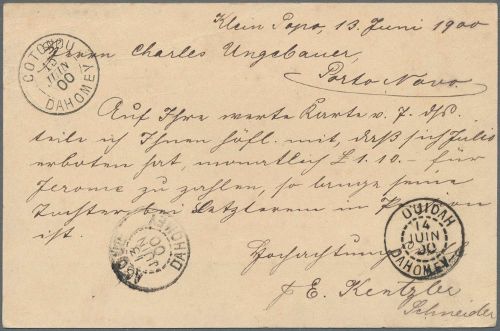 Klein Popo, 13. Juni 1900
Herrn Charles Ungebauer,
Porto Novo.
Auf Ihre werte Karte v. 7. ds.
teile ich Ihnen höfl. mit, daß sich Julio
erboten hat, monatlich £ 1.10.- für
Jerome zu zahlen, so lange seine
Tochter bei Letzterem in
ist.
Hochachtungsvoll
E. Kentzler
Schneider
COTONOU
15
JUIN
00
DAHOMEY
DAHOMEY
OUIDAH
14
JUIN
00
DAHOMEY